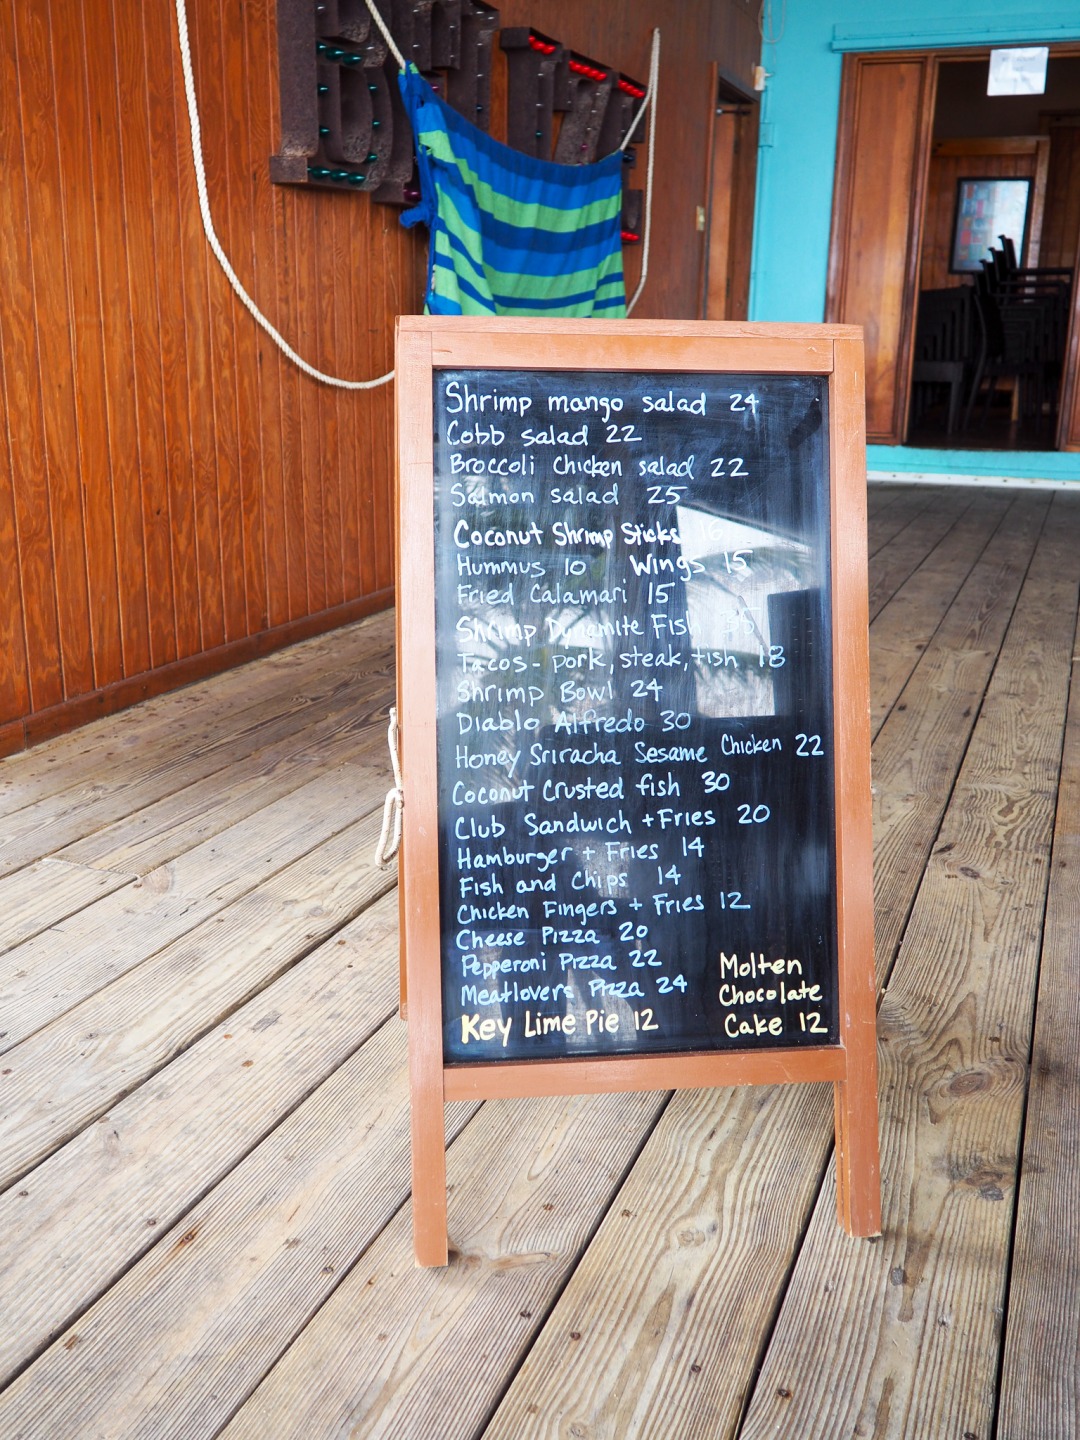 Shrimp mango salad 24
Cobb salad 22
Broccoli Chicken salad 22
Salmon salad 25
Coconut Shrimp Sticks 16
Hummus 10 Wings 15
Fried Calamari 15
Shrimp Dynamite Fish 35
Tacos - pork, steak, fish 18
Shrimp Bowl 24
Diablo Alfredo 30
Honey Sriracha Sesame Chicken 22
Coconut Crusted fish 30
Club Sandwich + Fries 20
Hamburger + Fries 14
Fish and Chips 14
Chicken Fingers + Fries 12
Cheese Pizza 20
Pepperoni Pizza 22
Meatlovers Pizza 24
Key Lime Pie 12
Molten
Chocolate
Cake 12